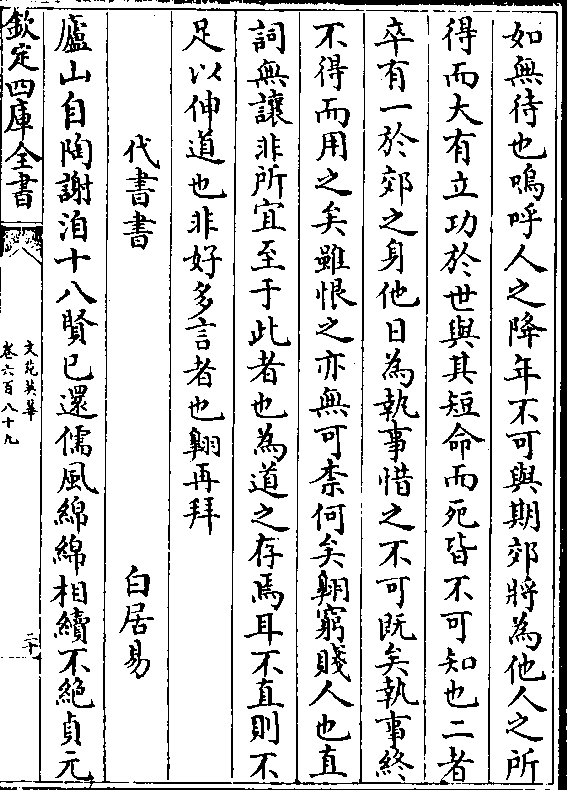 如無待也嗚呼人之降年不可與期郊將為他人之所
得而大有立功於世與其短命而死皆不可知也二者
卒有一於郊之身他日為執事惜之不可既矣執事終
不得而用之矣雖恨之亦無可柰何矣翺窮賤人也直
詞無讓非所宜至于此者也為道之存焉耳不直則不
足以伸道也非好多言者也翺再拜
代書書 白居易
廬山自陶謝洎十八賢已還儒風綿綿相續不絶貞元
欽定四庫全書
文苑英華
卷六百八十九
二十